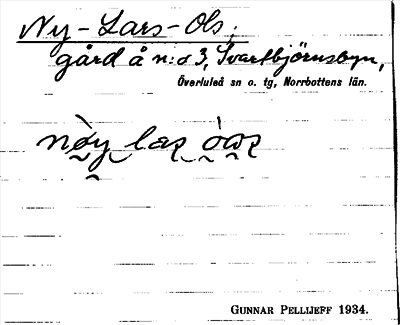 Ny-Lars-Ols,
gård å n:o 3, Svartbjörnsbyn,
Överluleå sn o. tg, Norrbottens län.
GUNNAR PELLIJEFF 1934.